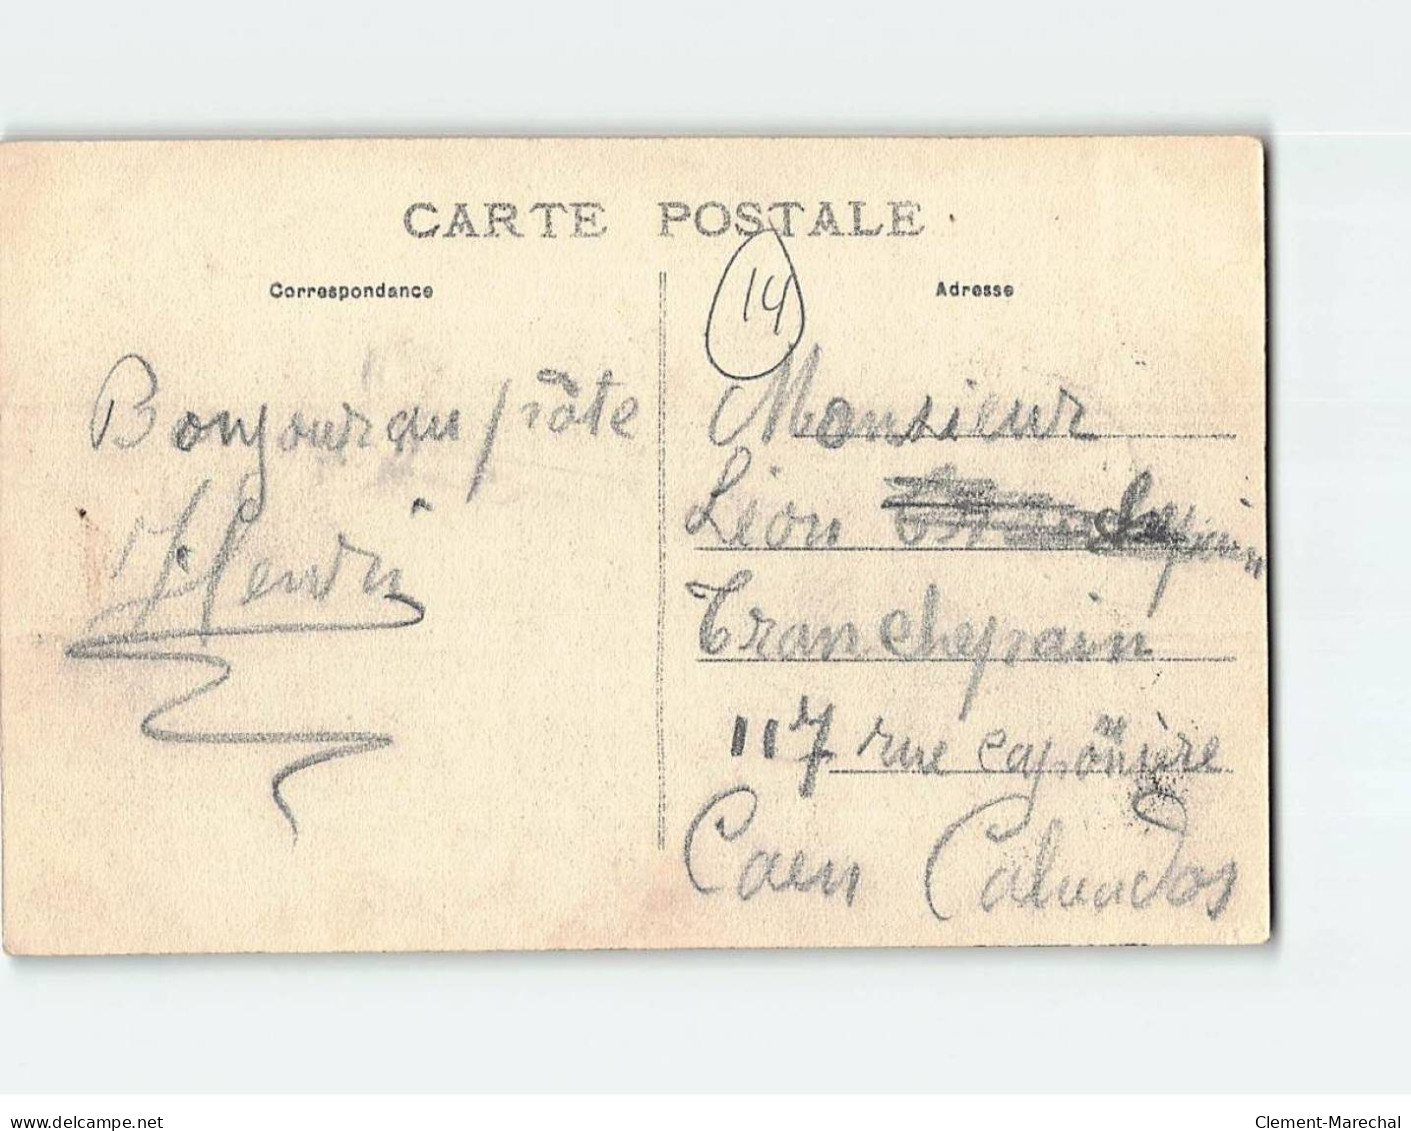 CARTE POSTALE
Correspondance
Bonjour du pôte
Henri
14
Adresse
Monsieur
Léon
Tranchepain
117 rue caponière
Caen Calvados
delcampe.net
Clement-Marechal